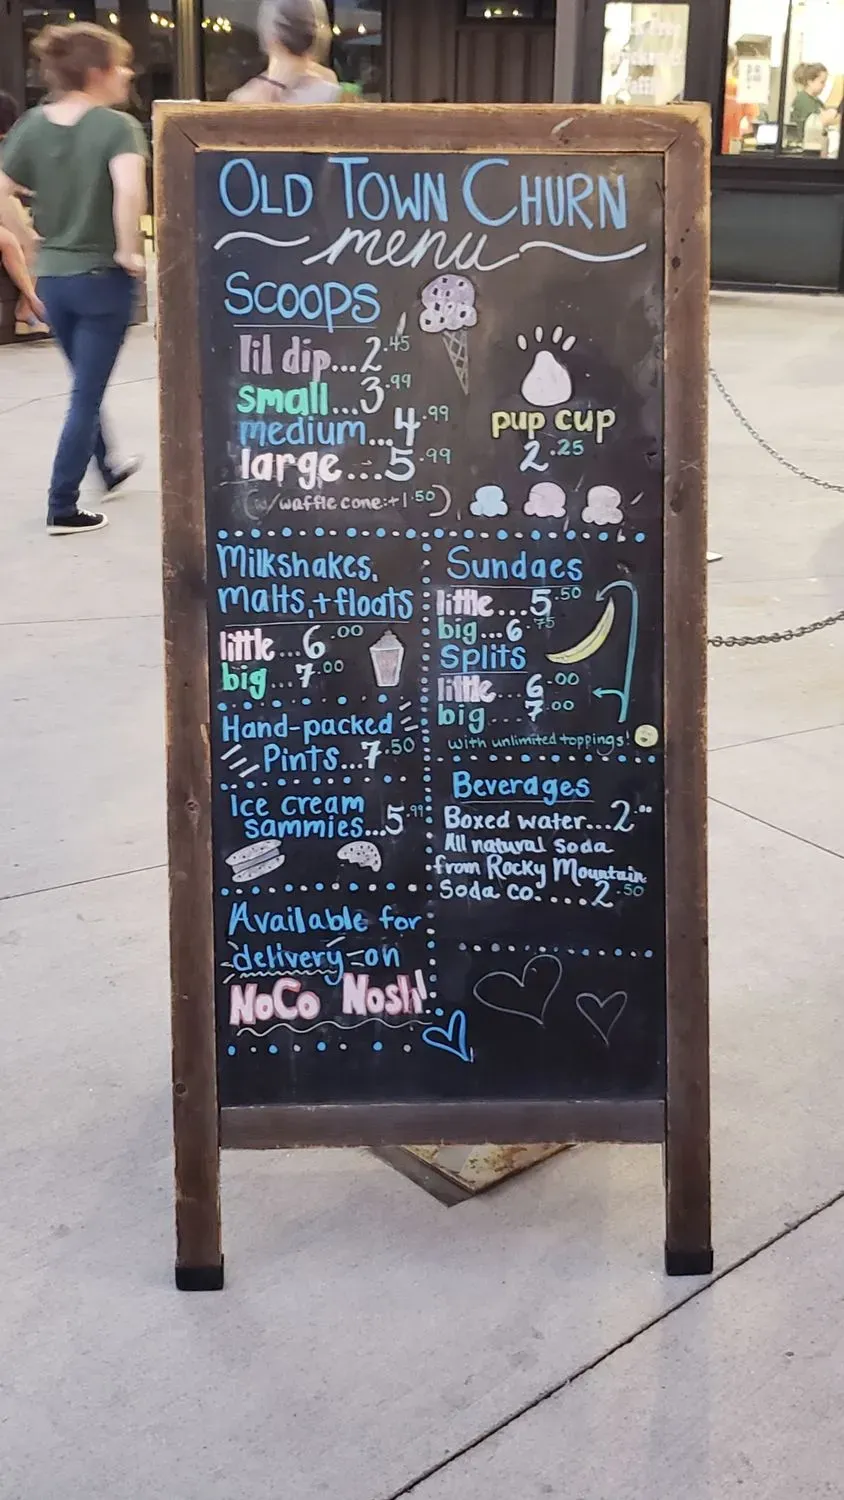 OLD TOWN CHURN
menu
SCOOPS
lil dip...2.45
small...3.99
medium...4.99
large...5.99
(w/waffle cone:+1.50)
pup cup
2.25
Milkshakes,
malts,+floats
little...6.00
big...7.00
Hand-packed
Pints...7.50
Ice cream
sammies...5.99
Available for
delivery on
NoCo Nosh!
Sundaes
little...5.50
big...6.75
Splits
little...6.00
big...7.00
with unlimited toppings!
Beverages
Boxed water...2.00
All natural soda
from Rocky Mountain
Soda co.....2.50